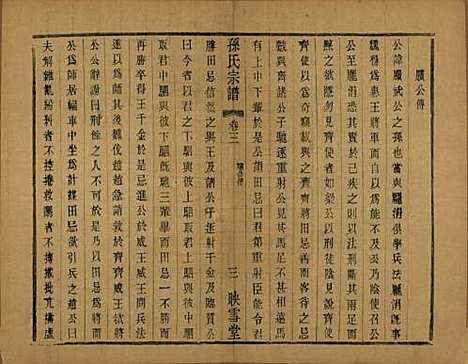 臏公傳
公諱臏武公之孫也與龐涓俱學兵法龐涓既
仕魏得爲惠王將軍而自以爲能不及公陰使召公
公至龐涓恐其賢於己疾之則以法刑斷其兩足而
黥之欲隱勿見齊使者如梁公以刑徒陰見說齊使
齊使以爲奇竊載與之齊齊將田忌善而客待之忌
數與齊諸公子馳逐重射公見其馬足不甚相遠馬
有上中下輩於是公謂田忌曰君第重射臣能令君
勝田忌信然之與王及諸公子逐射千金及臨質公
孫氏宗譜 卷三 臏公傳 三 映雪堂
曰今以君之下駟與彼上駟取君上駟與彼中駟
取君中駟與彼下駟既馳三輩畢而田忌一不勝而
再勝卒得王千金於是忌進公於威王威王問兵法
遂以爲師其後魏伐趙趙急請救於齊齊威王欲將
公公辭謝曰刑餘之人不可於是乃以田忌爲將而
公爲師居輜車中坐爲計謀田忌欲引兵之趙公曰
夫解雜亂紛糾者不控捲救鬭者不搏撠批亢擣虛